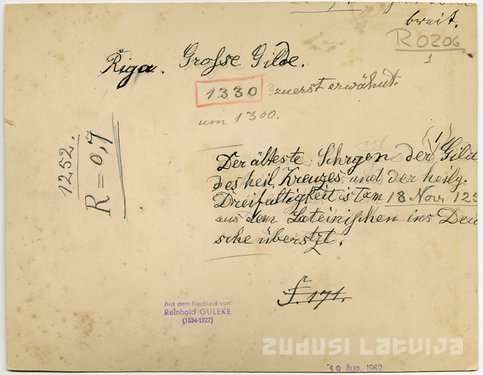 breit.
R0206
1
Riga. Grosse Gilde.
1380 zuerst erwähnt.
um 1300.
1252.
R = 0,7
Der älteste Schrgen der Gild
des heil. Kreuzes und der heilg.
Dreifaltigkeit ist am 18 Nov. 125
aus dem Lateinischen ins Deu
sche überstzt.
f. 171.
Aus dem Nachlass von
Reinhold GULEKE
(1834-1927)
ZUDUSI LATVIJA
10 Aug. 1962